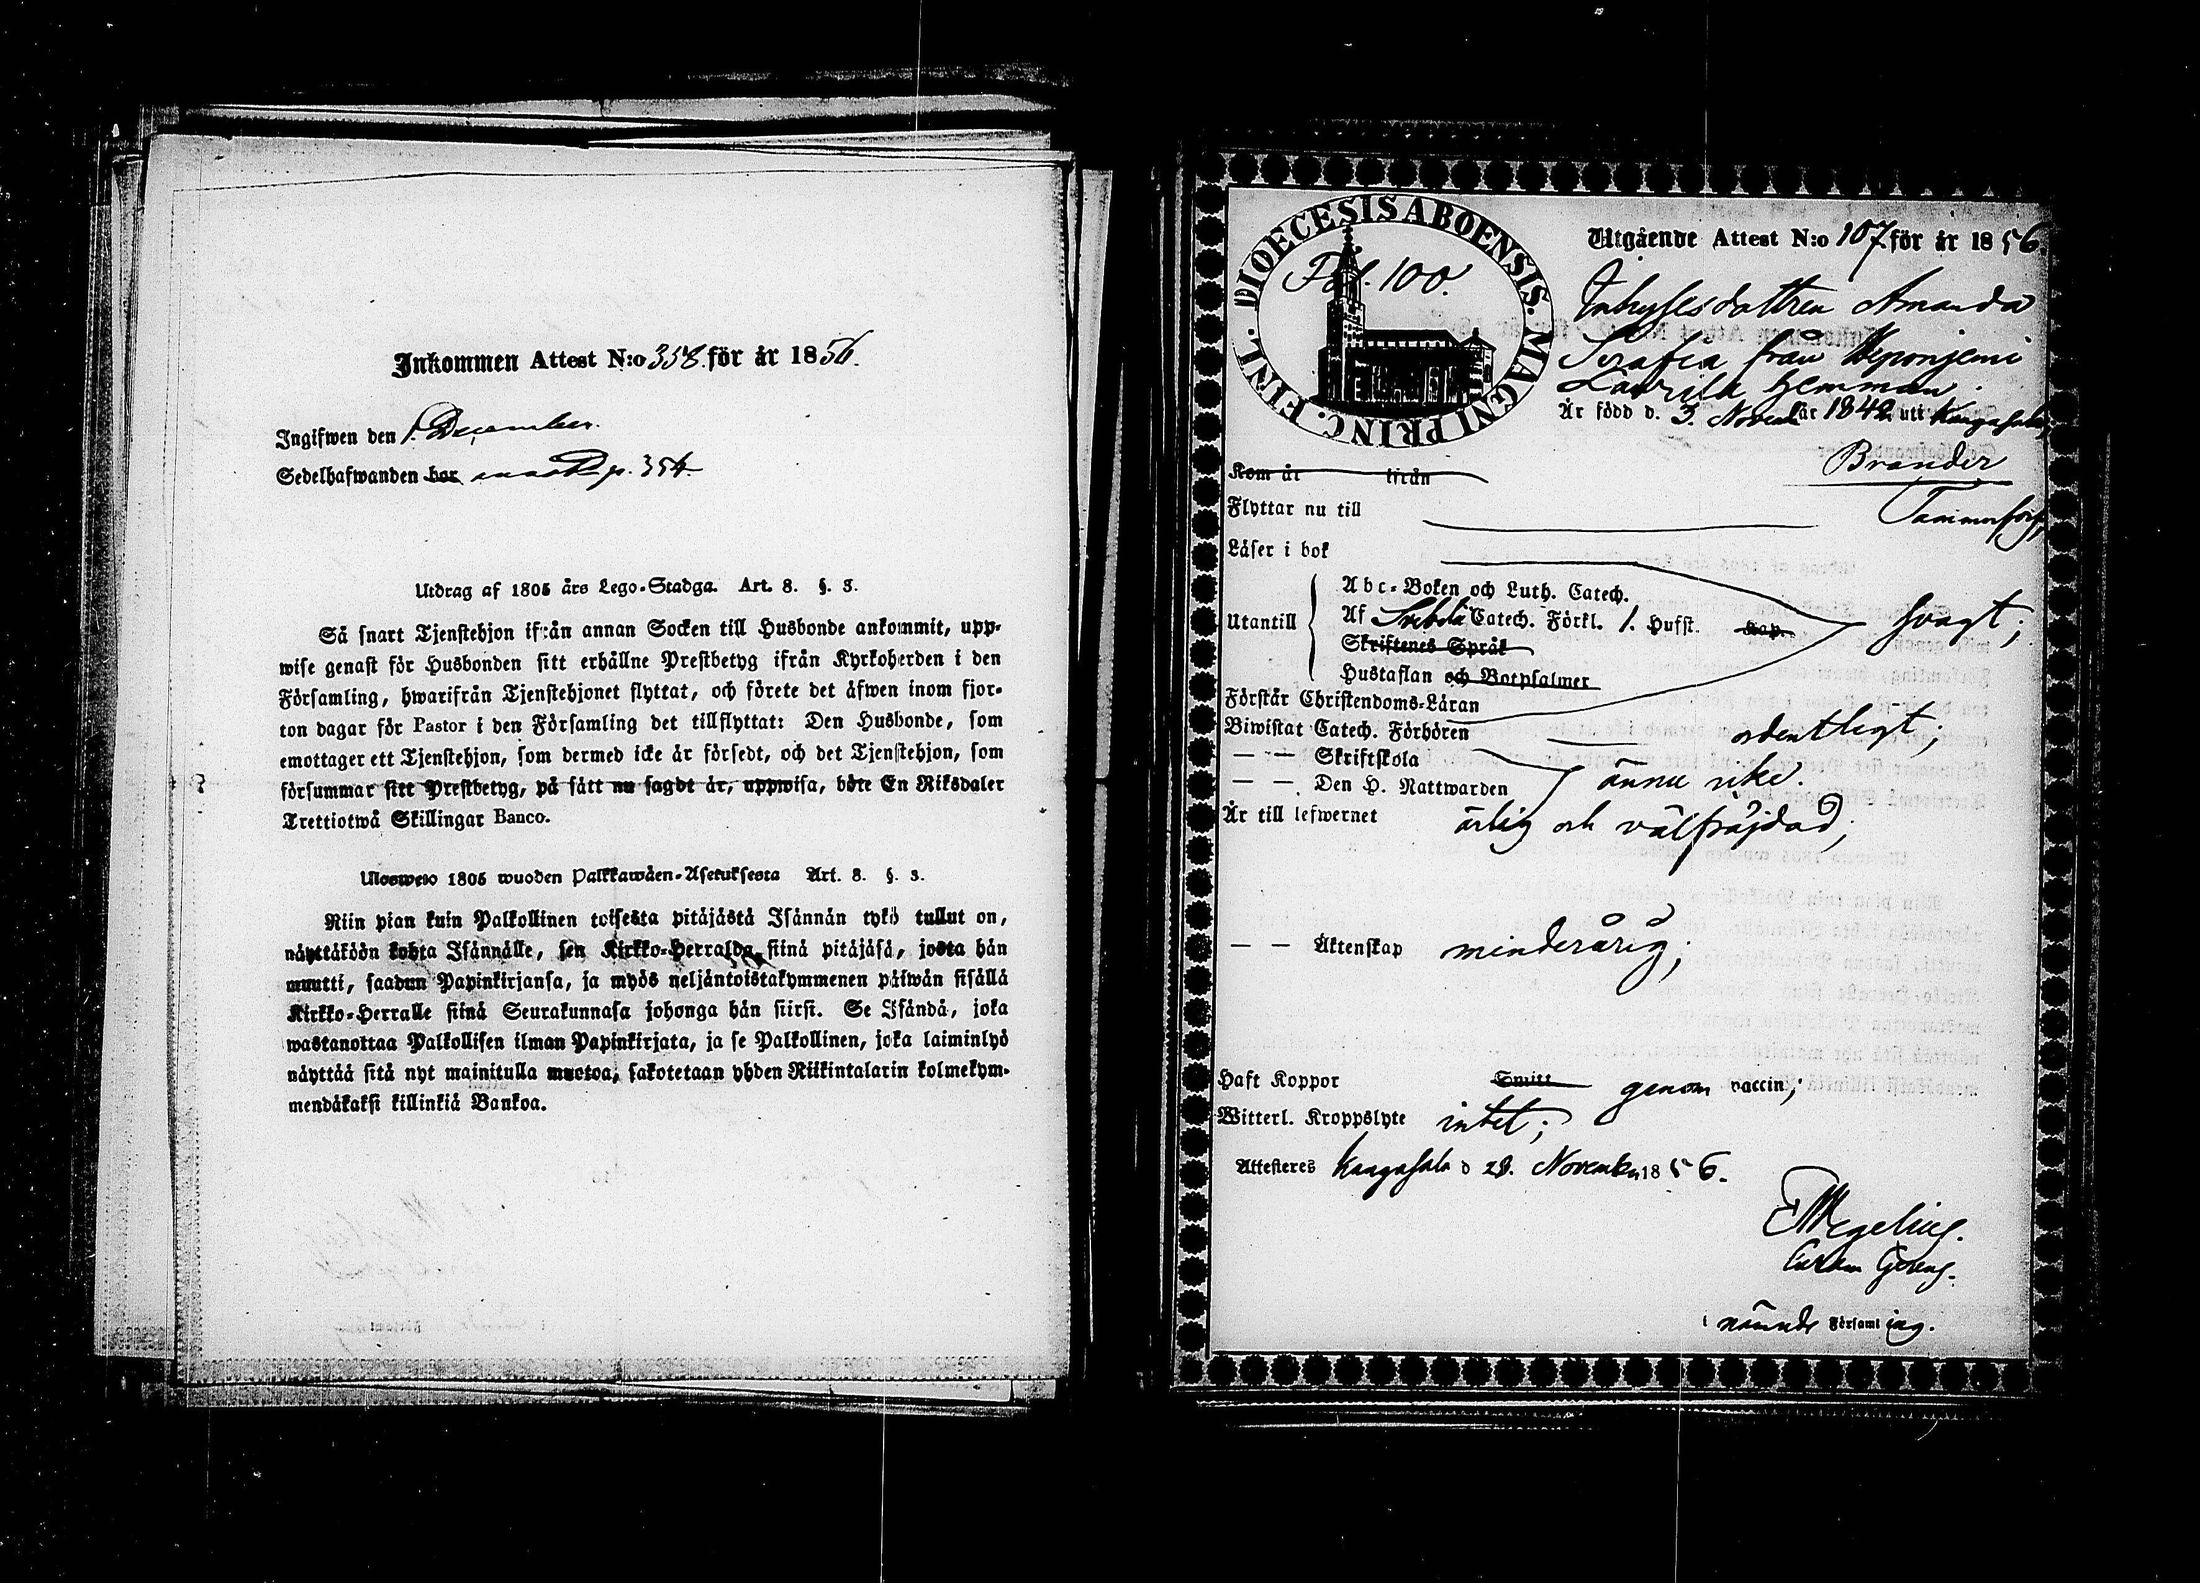 Inkommen Attest N:o 358. för år 1856.
Ingifwen den 1. December.
Sedelhafwanden bor p. 354
Utdrag af 1805 års Lego-Stadga. Art. 8. §. 3.
Så snart Tjenstehjon ifrån annan Socken till Husbonde ankommit, upp-
wise genast för Husbonden sitt erhållne Prestbetyg ifrån Kyrkoherden i den
Församling, hwarifrån Tjenstehjonet flyttat, och förete det äfwen inom fjor-
ton dagar för Pastor i den Församling det tillflyttat: Den Husbonde, som
emottager ett Tjenstehjon, som dermed icke är försedt, och det Tjenstehjon, som
försummar sitt Prestbetyg, på sätt nu sagdt är, uppwisa, böte En Riksdaler
Trettiotwå Skillingar Banco.
Ulosweto 1805 wuoden Palkkawäen-Asetuksesta Art. 8. §. 3.
Niin pian kuin Palkollinen toisesta pitäjästä Isännän tykö tullut on,
näyttäköön kohta Isännälle, sen Kirkko-Herralda siinä pitäjäsä, josta hän
muutti, saadun Papinkirjansa, ja myös neljäntoistakymmenen päiwän sisällä
Kirkko-Herralle siinä Seurakunnasa johonga hän siirsi. Se Isändä, joka
wastanottaa Palkollisen ilman Papinkirjata, ja se Palkollinen, joka laiminlyö
näyttää sitä nyt mainitulla muotoa, sakotetaan yhden Riikintalarin kolmekym-
mendäkaksi killinkiä Bankoa.
DIOECESIS ABOENSIS. MAGNI PRINC. FINL.
Fol. 100.
Utgående Attest N:o 107 för år 1856.
Inhysesdottren Amanda
Serafia från Weponjemi
Laurila hemman.
Är född d. 3. Novemb år 1842 uti Kangasala;
Brander
Kom år ifrån
Flyttar nu till Tammerfors;
Läser i bok
Abc-Boken och Luth. Catech.
Utantill Af Svebilii Catech. Förkl. 1. Hufst. Kap. svagt;
Skriftenes Språk
Hustaflan och Botpsalmer
Förstår Christendoms-Läran
Biwistat Catech. Förhören ordentligt;
— — Skriftskola
— — Den H. Nattwarden ännu icke.
Är till lefwernet ärlig och välfräjdad;
— — Äktenskap minderårig;
Haft Koppor Smitt genom vaccin;
Witterl. Kroppslyte intet;
Attesteres Kangasala d 28. November 1856.
Wegelius.
i nämnde Församling.